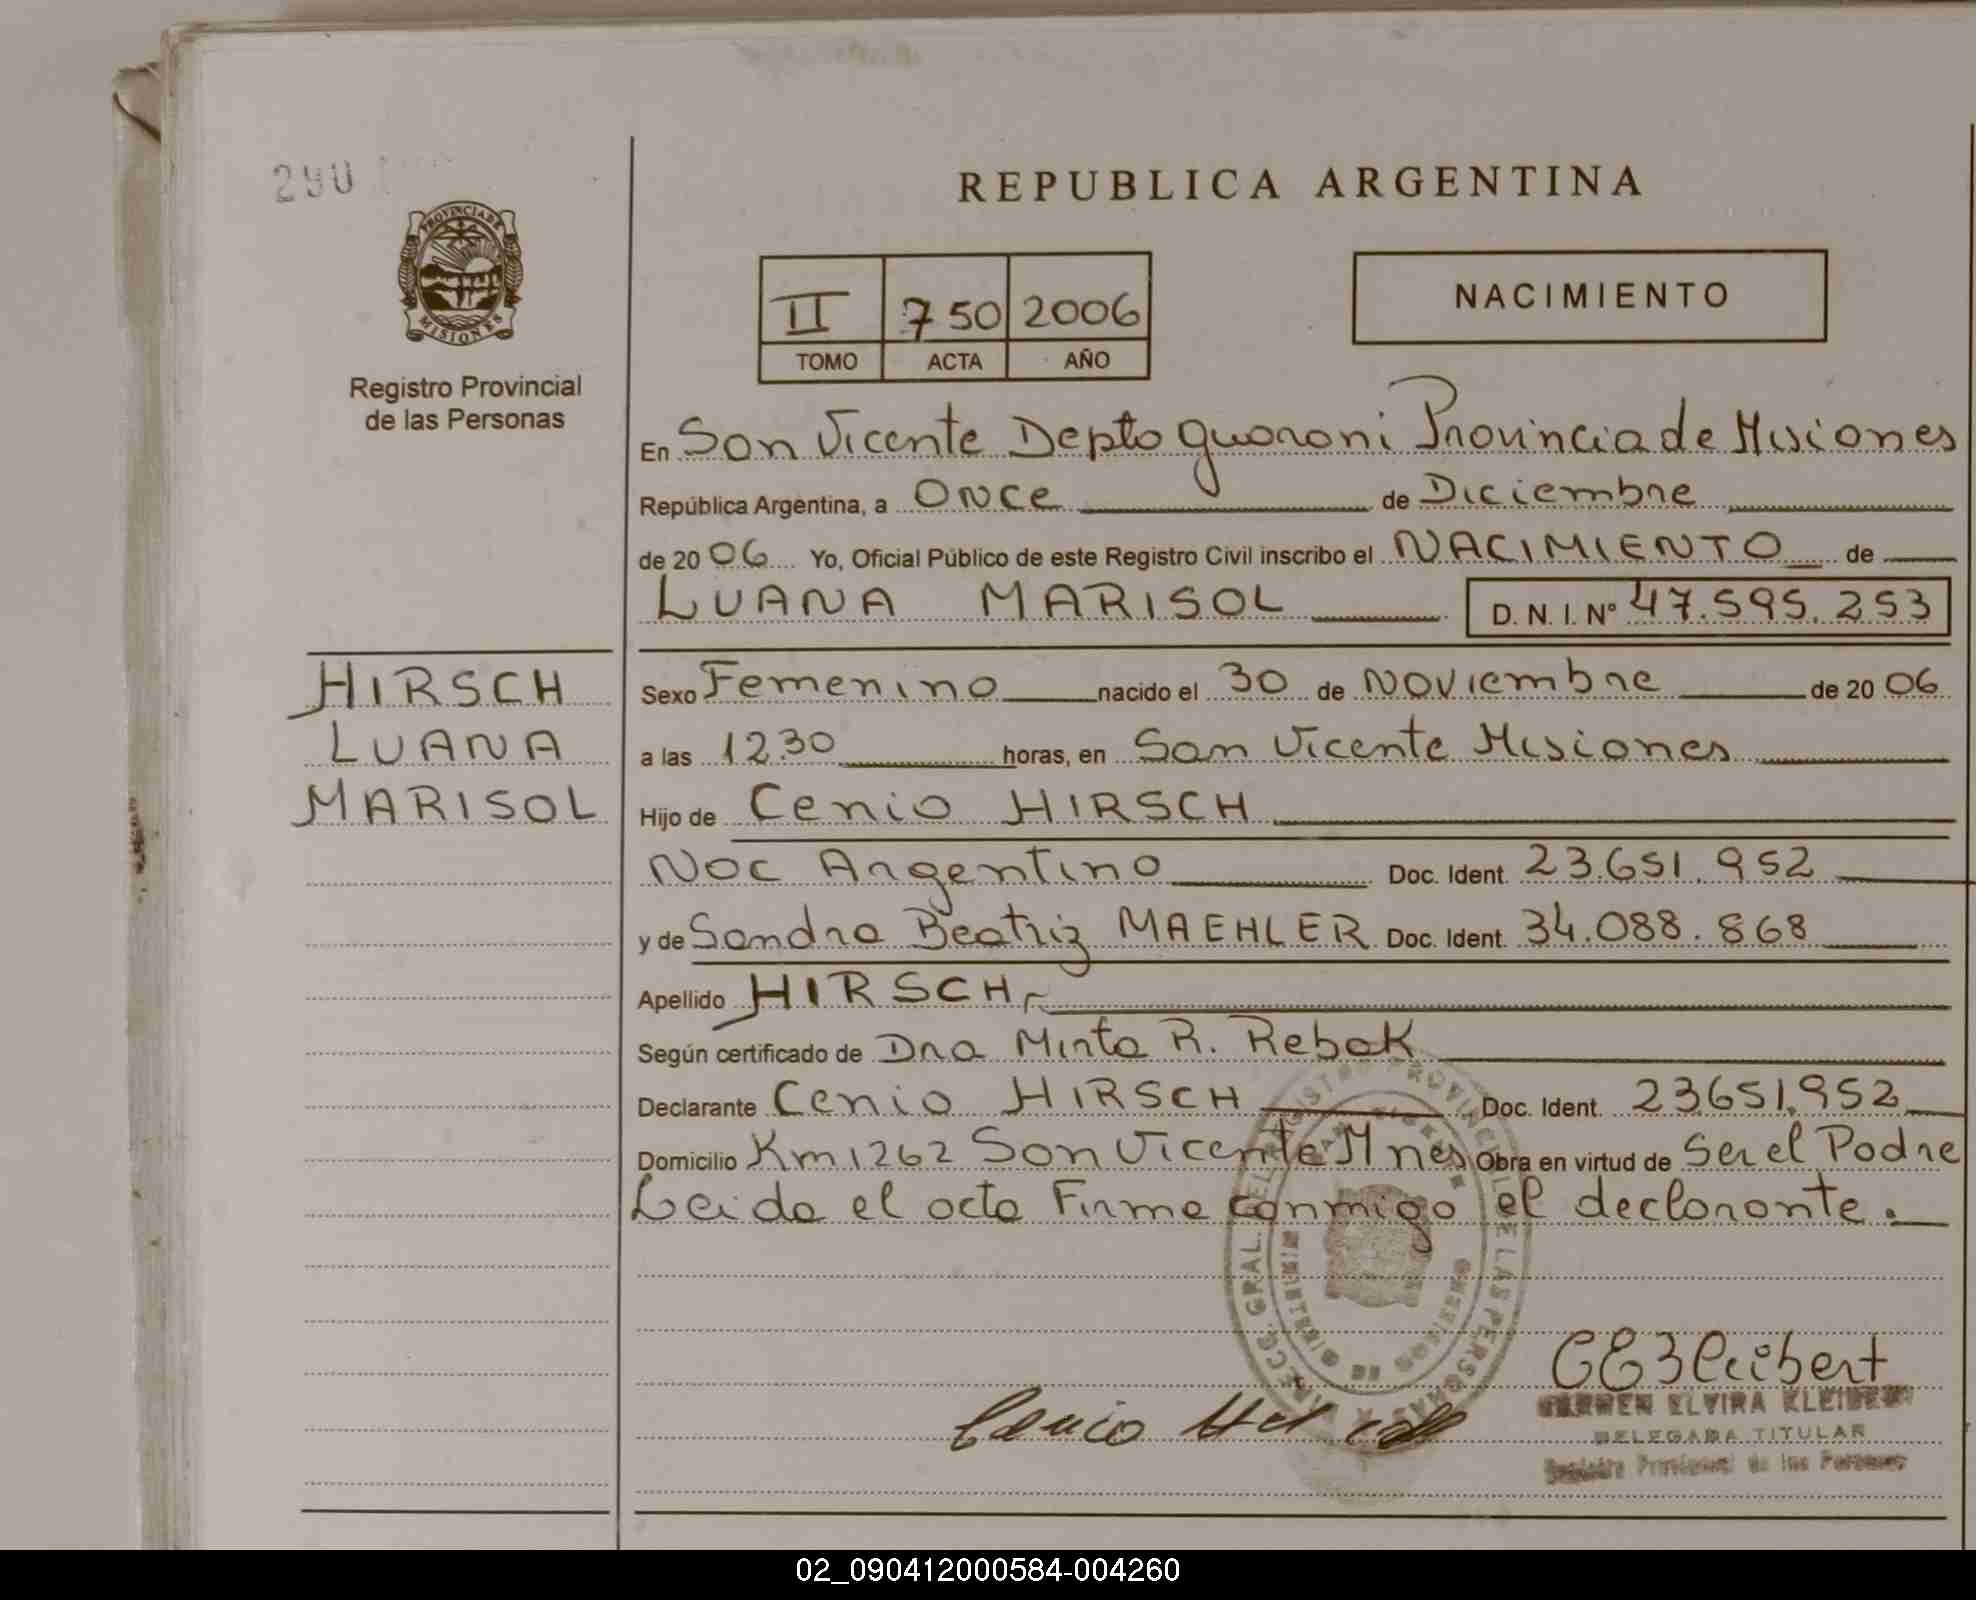 290
PROVINCIA DE
MISIONES
Registro Provincial
de las Personas
REPUBLICA ARGENTINA
II 750 2006
TOMO ACTA AÑO
NACIMIENTO
En San Vicente Depto guarani Provincia de Misiones
República Argentina, a Once de Diciembre
de 2006 Yo, Oficial Público de este Registro Civil inscribo el NACIMIENTO de
LUANA MARISOL D. N. I. Nº 47.595.253
HIRSCH
LUANA
MARISOL
Sexo Femenino nacido el 30 de Noviembre de 2006
a las 12.30 horas, en San Vicente Misiones
Hijo de Cenio HIRSCH
Nac Argentino Doc. Ident. 23.651.952
y de Sandra Beatriz MAEHLER Doc. Ident. 34.088.868
Apellido HIRSCH
Según certificado de Dra Mirta R. Rebak
Declarante Cenio HIRSCH Doc. Ident. 23651.952
Domicilio Km 1262 San Vicente Mnes Obra en virtud de Ser el Padre
Leida el acta Firma conmigo el declarante.
Cenio
CARMEN ELVIRA
DELEGADA TITULAR
Registro Provincial de las Personas
02_090412000584-004260